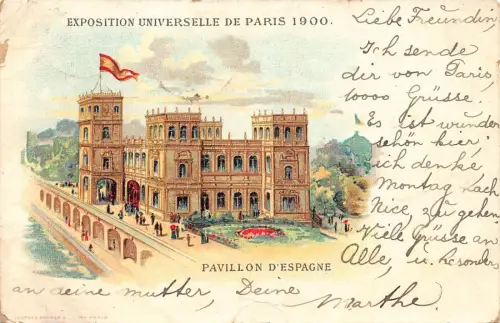 EXPOSITION UNIVERSELLE DE PARIS 1900.
Liebe Freundin,
Ich sende
dir von Paris,
10000 Grüsse.
Es ist wunder
schön hier;
ich denke
Montag nach
Nice, zu gehen.
Viele Grüsse an
Alle, u. besonders
an deine mutter, Deine
Marthe.
PAVILLON D'ESPAGNE